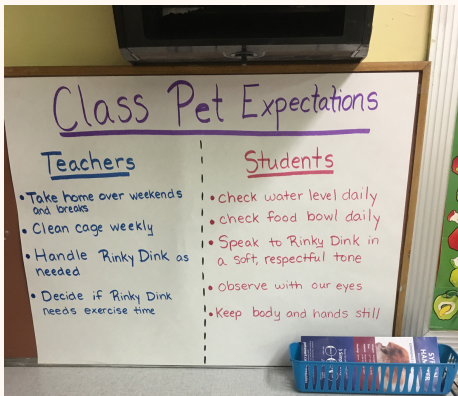 Class Pet Expectations
Teachers
• Take home over weekends
and breaks
• Clean cage weekly
• Handle Rinky Dink as
needed
• Decide if Rinky Dink
needs exercise time
Students
• check water level daily
• check food bowl daily
• Speak to Rinky Dink in
a soft, respectful tone
• observe with our eyes
• Keep body and hands still